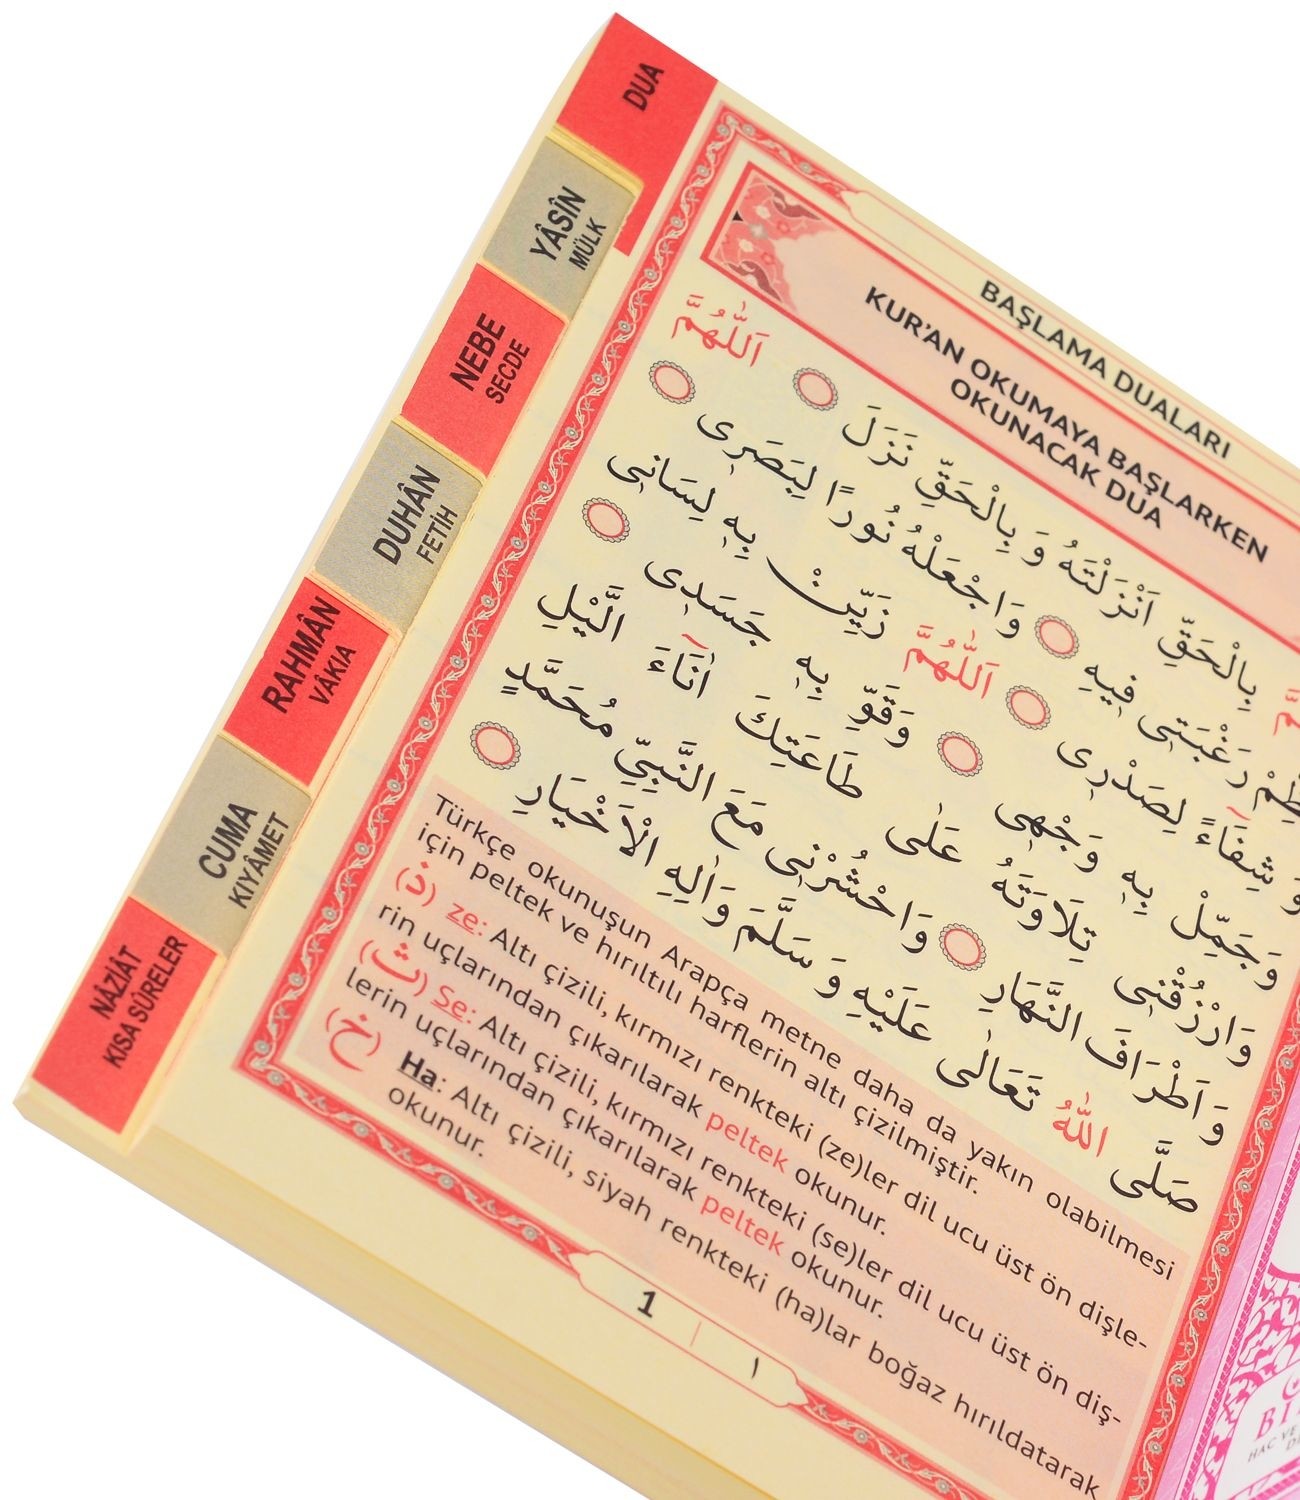 DUA
YÂSÎN
MÜLK
NEBE
SECDE
DUHÂN
FETİH
RAHMÂN
VÂKIA
CUMA
KIYÂMET
NÂZİÂT
KISA SÛRELER
BAŞLAMA DUALARI
KUR’AN OKUMAYA BAŞLARKEN
OKUNACAK DUA
بِالْحَقِّ اَنْزَلْتَهُ وَ بِالْحَقِّ نَزَلَ اَللّٰهُمَّ
رَغْبَتٖى فٖيهِ وَاجْعَلْهُ نُورًا لِبَصَرٖى
شِفَٓاءً لِصَدْرٖى اَللّٰهُمَّ زَيِّنْ بِهٖ لِسَانٖى
وَجَمِّلْ بِهٖ وَجْهٖى وَقَوِّ بِهٖ جَسَدٖى
وَارْزُقْنٖى تِلَاوَتَهُ عَلٰى طَاعَتِكَ اٰنَٓاءَ الَّيْلِ
وَاَطْرَافَ النَّهَارِ وَاحْشُرْنٖى مَعَ النَّبِىِّ مُحَمَّدٍ
صَلَّى اللّٰهُ تَعَالٰى عَلَيْهِ وَ سَلَّمَ وَاٰلِهِ الْاَخْيَارِ
Türkçe okunuşun Arapça metne daha da yakın olabilmesi
için peltek ve hırıltılı harflerin altı çizilmiştir.
(ذ) ze: Altı çizili, kırmızı renkteki (ze)ler dil ucu üst ön dişle-
rin uçlarından çıkarılarak peltek okunur.
(ث) Se: Altı çizili, kırmızı renkteki (se)ler dil ucu üst ön diş-
lerin uçlarından çıkarılarak peltek okunur.
(خ) Ha: Altı çizili, siyah renkteki (ha)lar boğaz hırıldatarak
okunur.
1 ١